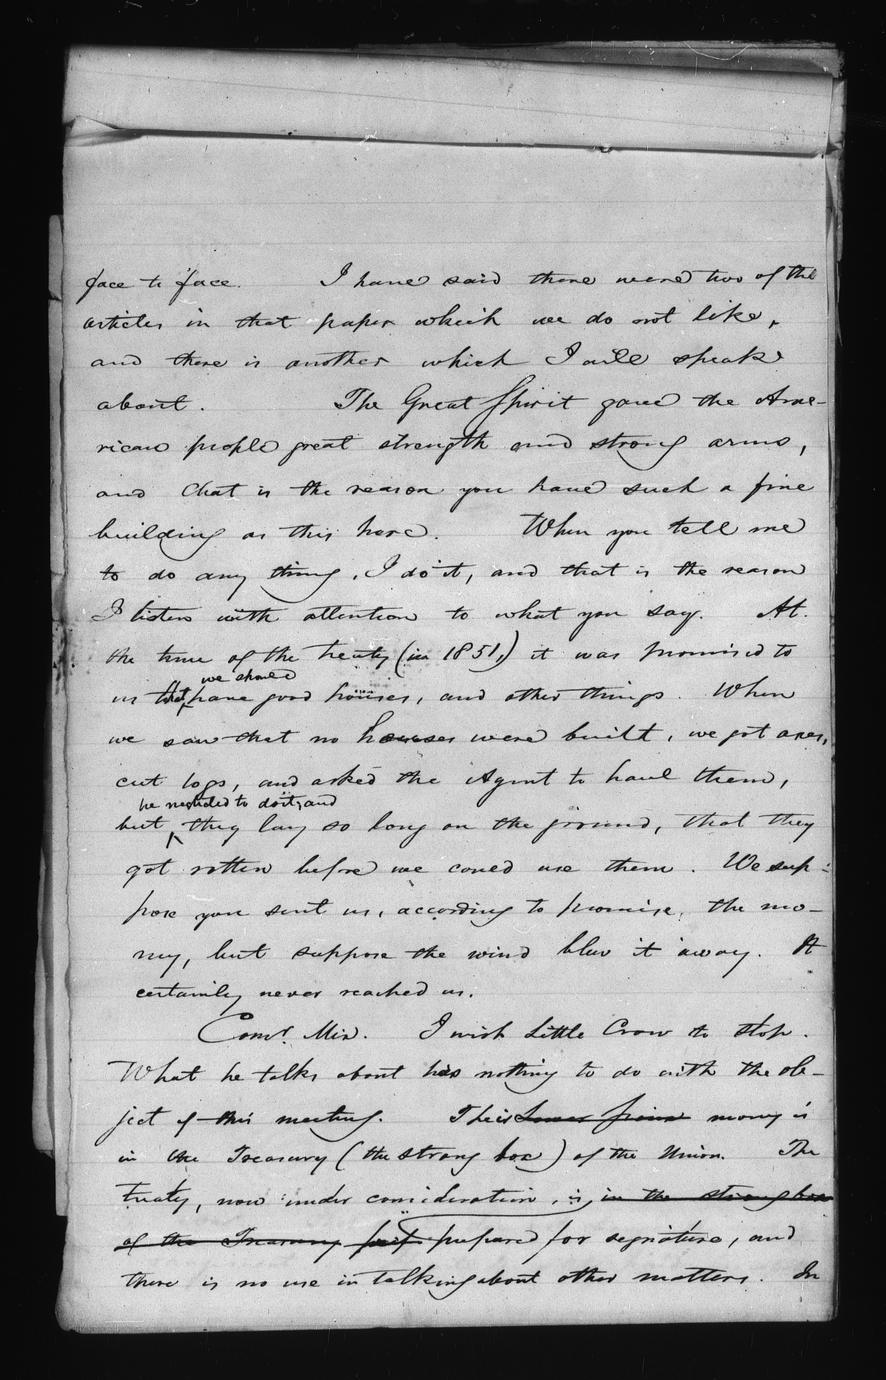 face to face. I have said there were two of the
articles in that paper which we do not like,
and there is another which I will speak
about. The Great Spirit gave the Ame-
rican people great strength and strong arms,
and that is the reason you have such a fine
building as this here. When you tell me
to do any thing, I do it, and that is the reason
I listen with attention to what you say. At
the time of the treaty (in 1851,) it was promised to
we should
us that have good houses, and other things. When
we saw that no houses were built, we got axes,
cut logs, and asked the Agent to haul them,
he neglected to do it, and
but they lay so long on the ground, that they
got rotten before we could use them. We sup-
pose you sent us, according to promise, the mo-
ney, but suppose the wind blew it away. It
certainly never reached us.
Comr. Mix. I wish Little Crow to stop.
What he talks about has nothing to do with the ob-
ject of this meeting. Their money is
in the Treasury (the strong box) of the Union. The
Treaty, now under consideration, is in the strong box
of the Treasury prepared for signature, and
there is no use in talking about other matters. In